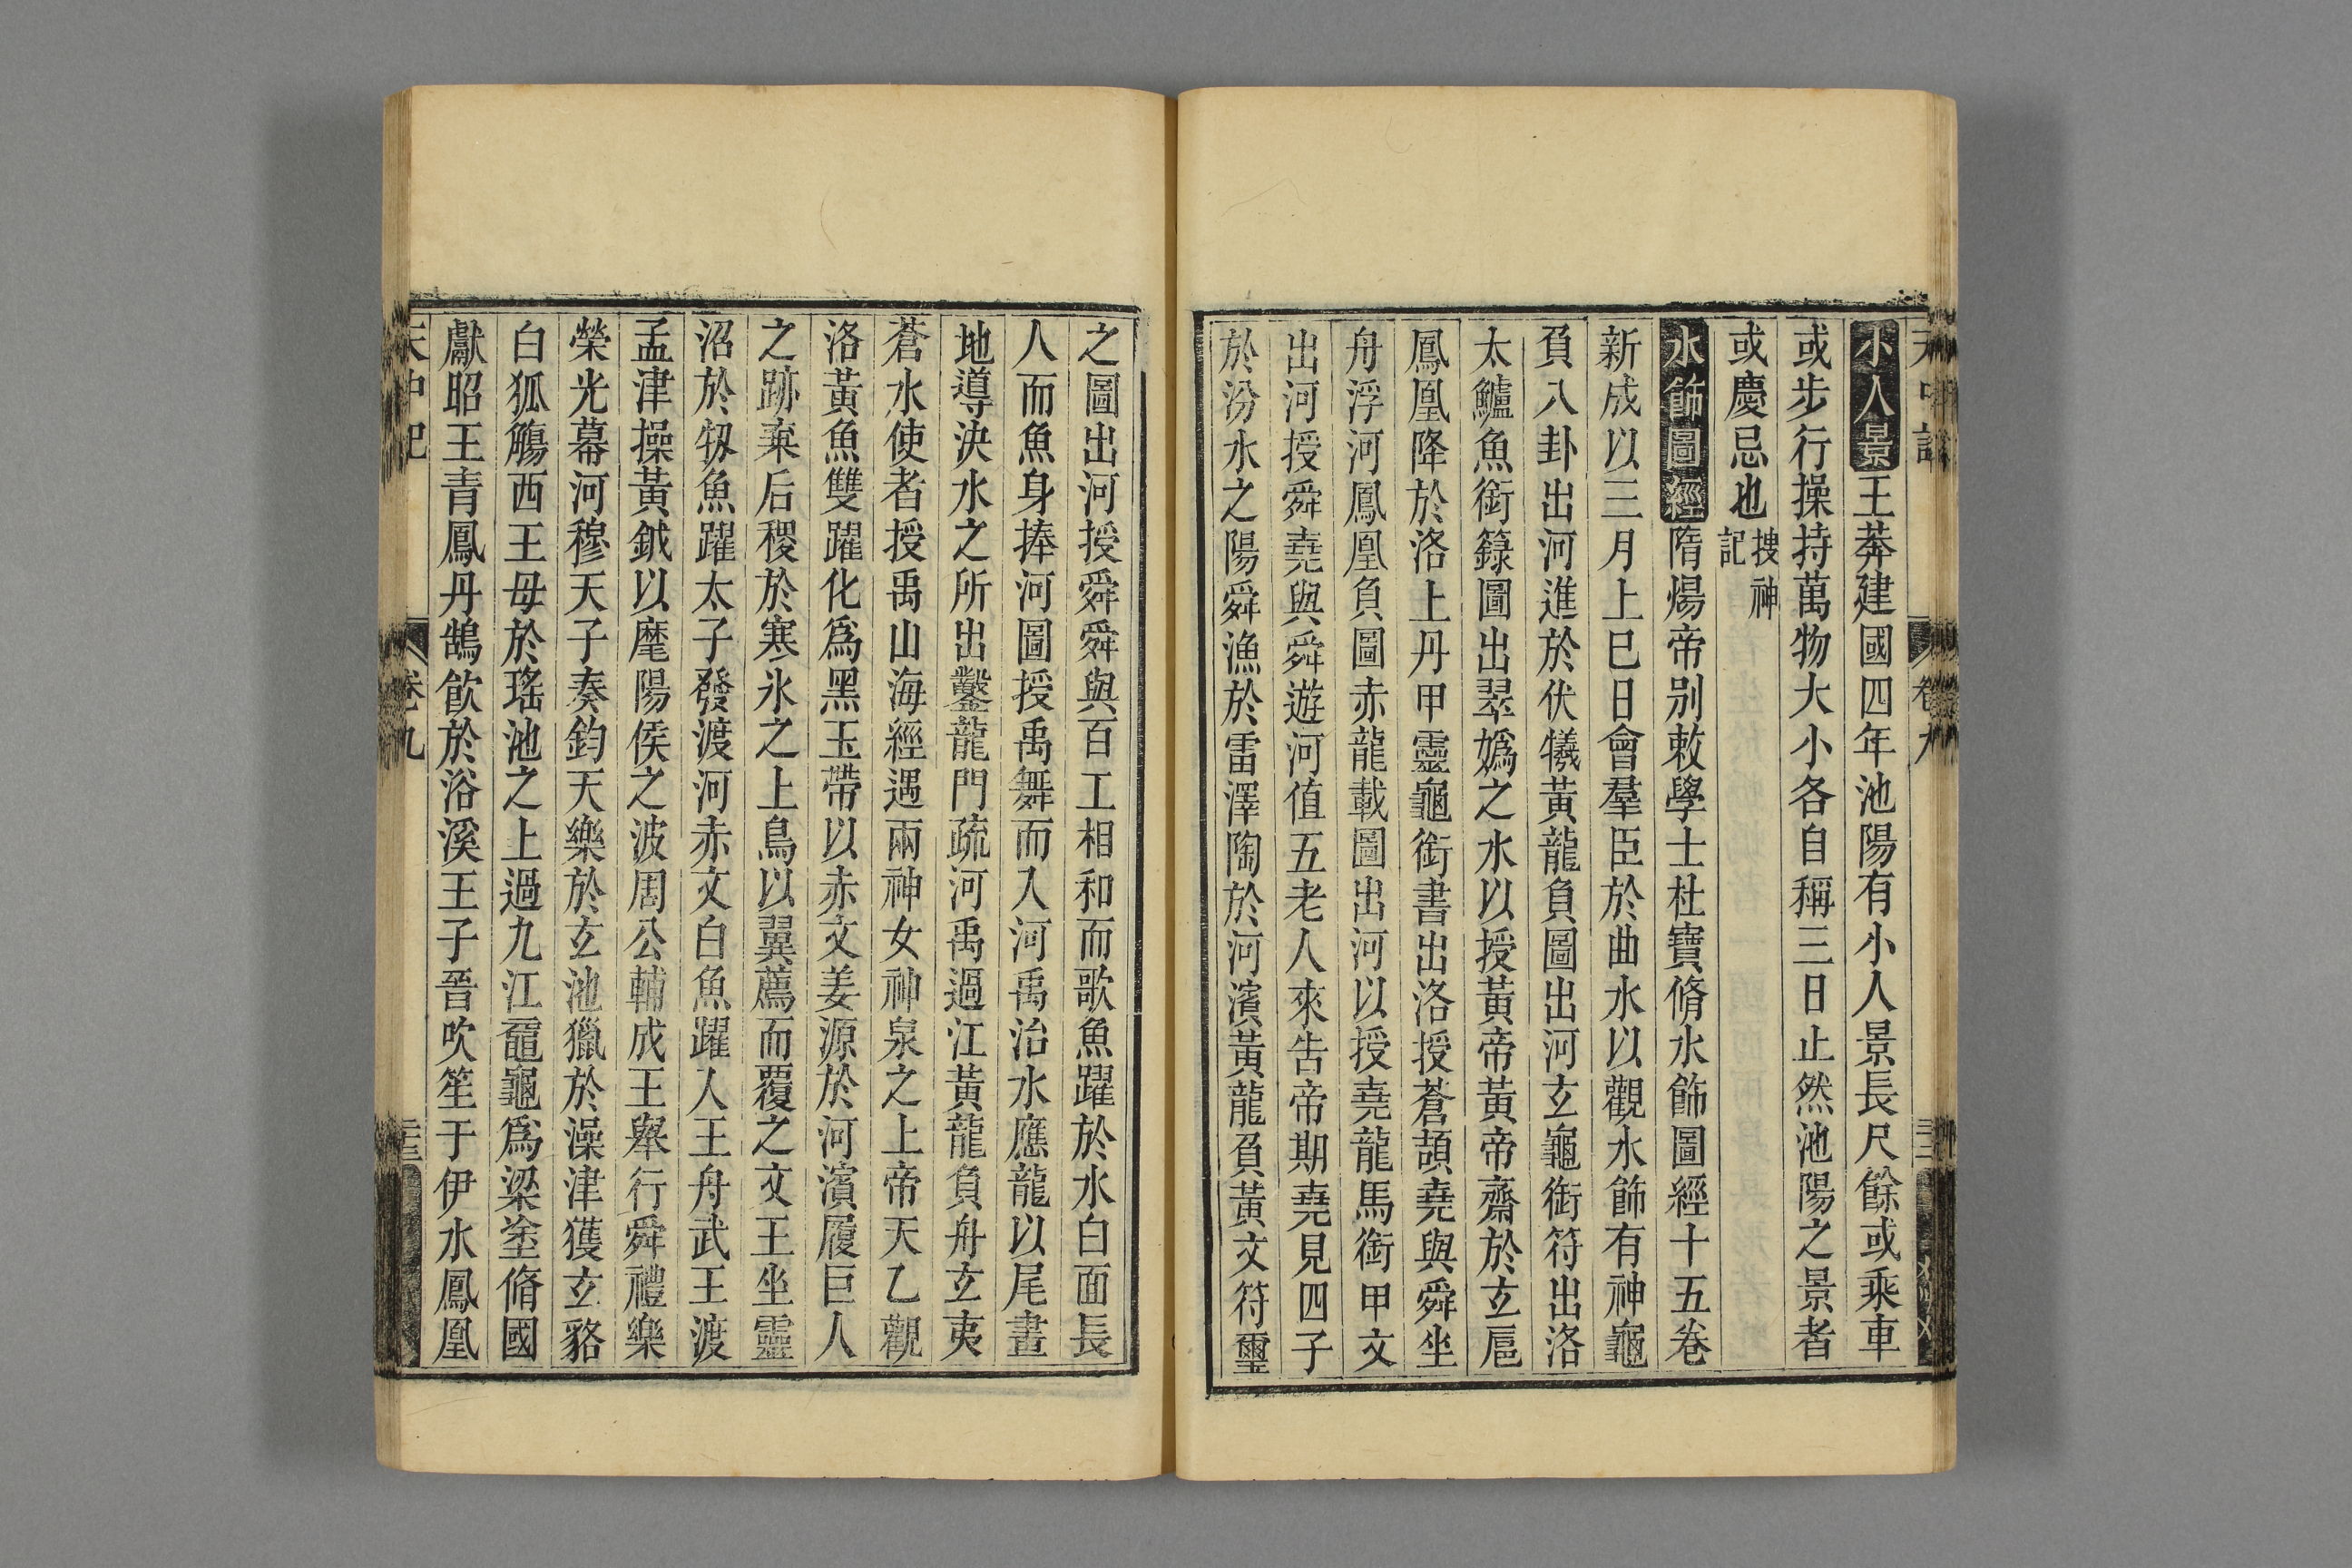 小人景王莽建國四年池陽有小人景長尺餘或乘車
或步行操持萬物大小各自稱三日止然池陽之景者
或慶忌也搜神記
水飾圖經隋煬帝别敕學士杜寶脩水飾圖經十五卷
新成以三月上巳日會羣臣於曲水以觀水飾有神龜
負八卦出河進於伏犧黃龍負圖出河玄龜銜符出洛
太鱸魚銜籙圖出翠嬀之水以授黃帝黃帝齋於玄扈
鳳凰降於洛上丹甲靈龜銜書出洛授蒼頡堯與舜坐
舟浮河鳳凰負圖赤龍載圖出河以授堯龍馬銜甲文
出河授舜堯與舜遊河值五老人來告帝期堯見四子
於汾水之陽舜漁於雷澤陶於河濱黃龍負黃文符璽
之圖出河授舜舜與百工相和而歌魚躍於水白面長
人而魚身捧河圖授禹舞而入河禹治水應龍以尾畫
地導決水之所出鑿龍門疏河禹過江黃龍負舟玄夷
蒼水使者授禹山海經遇兩神女神泉之上帝天乙觀
洛黃魚雙躍化爲黑玉帶以赤文姜源於河濱履巨人
之跡棄后稷於寒氷之上鳥以翼薦而覆之文王坐靈
沼於牣魚躍太子發渡河赤文白魚躍入王舟武王渡
孟津操黃鉞以麾陽侯之波周公輔成王舉行舜禮樂
榮光幕河穆天子奏鈞天樂於玄池獵於澡津獲玄貉
白狐觴西王母於瑤池之上過九江黿龜爲梁塗脩國
獻昭王青鳳丹鵠飲於浴溪王子晉吹笙于伊水鳳凰
卷九